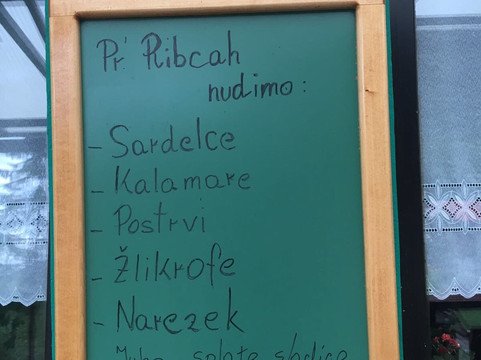 Pr' Ribcah
nudimo:
- Sardelce
- Kalamare
- Postrvi
- Žlikrofe
- Narezek
solate, sladice